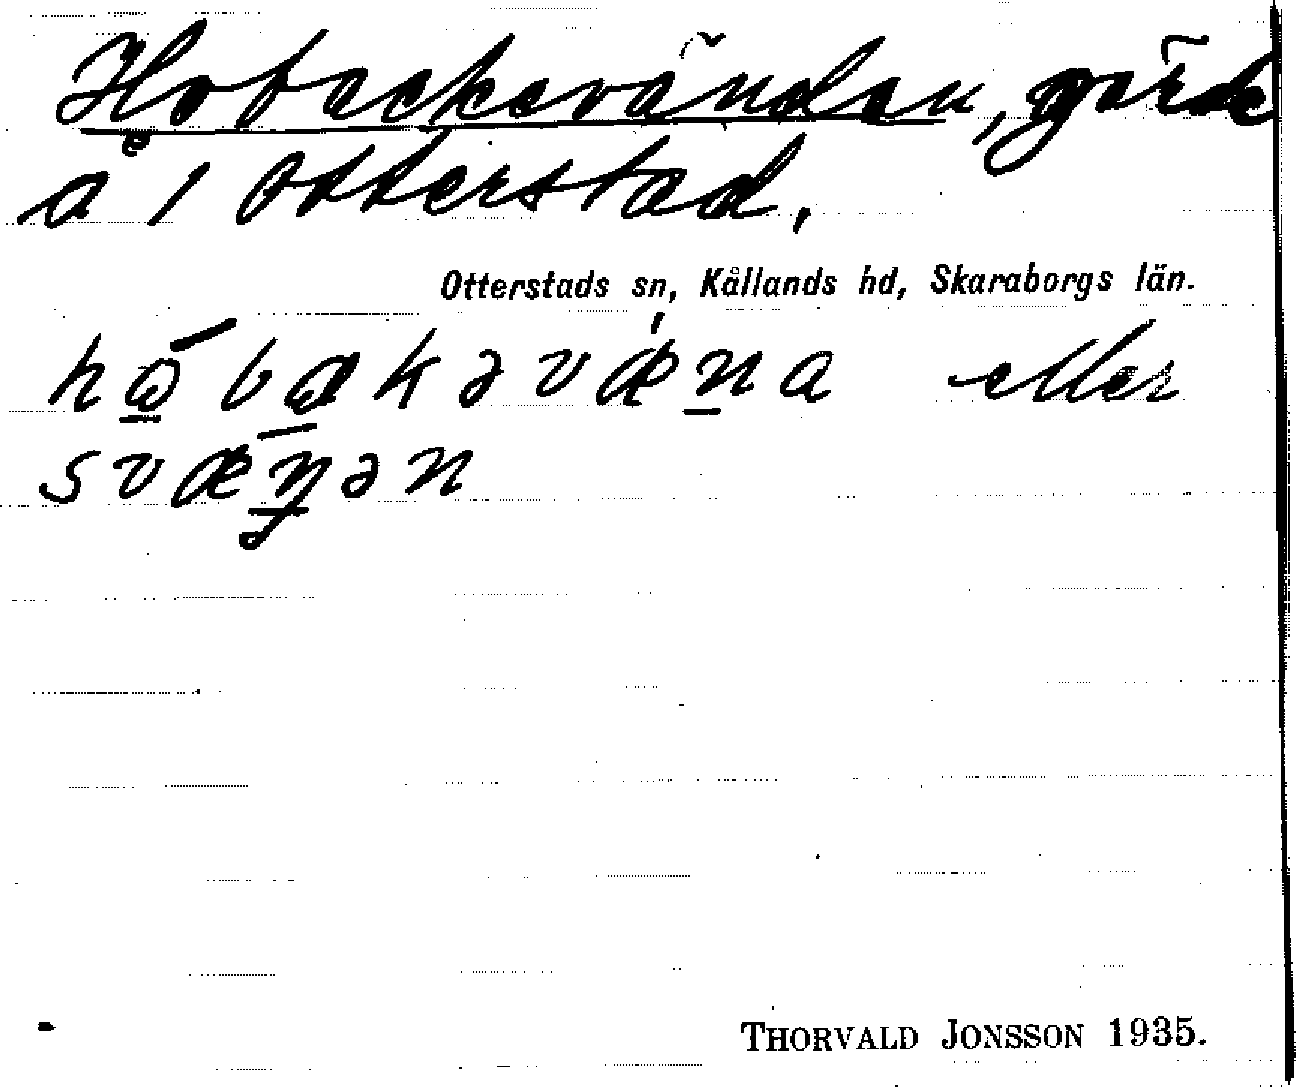 Hobackavändan, gärde
å 1 Otterstad.
Otterstads sn, Kållands hd, Skaraborgs län.
håbakəvæna eller
svæŋən
THORVALD JONSSON 1935.